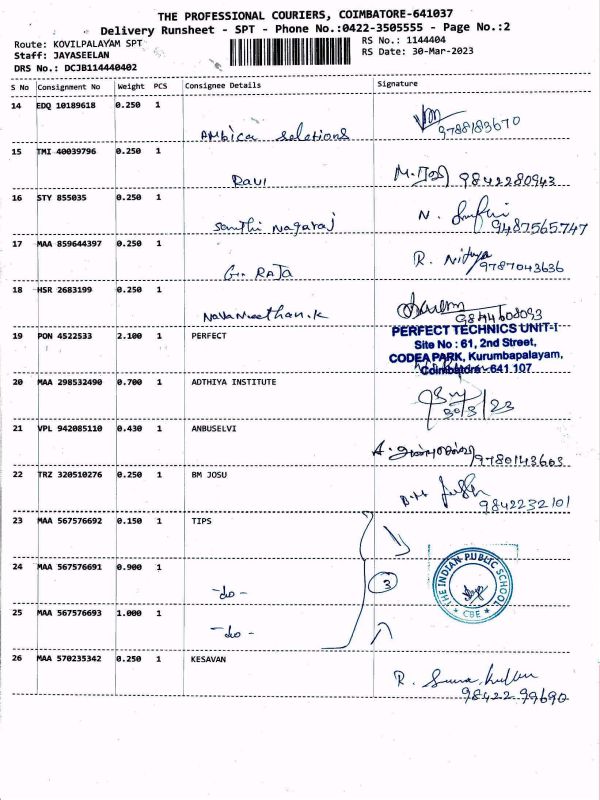 THE PROFESSIONAL COURIERS, COIMBATORE-641037
Delivery Runsheet - SPT - Phone No.:0422-3505555 - Page No.:2
Route: KOVILPALAYAM SPT RS No.: 1144404
Staff: JAYASEELAN RS Date: 30-Mar-2023
DRS No.: DCJB114440402
S No Consignment No Weight PCS Consignee Details Signature
14 EDQ 10189618 0.250 1
Ambica solutions 9788183670
15 TMI 40039796 0.250 1
Ravi 9842280943
16 STY 855035 0.250 1
Santhi Nagaraj N. 9487565747
17 MAA 859644397 0.250 1
G. RAJA R. Nidya 9787043636
18 HSR 2683199 0.250 1
Navaneethan.K 9844608093
19 PON 4522533 2.100 1 PERFECT
PERFECT TECHNICS UNIT-I
Site No : 61, 2nd Street,
CODEA PARK, Kurumbapalayam,
Coimbatore - 641 107.
20 MAA 298532490 0.700 1 ADTHIYA INSTITUTE
30/3/23
21 VPL 942085110 0.430 1 ANBUSELVI
9780143663
22 TRZ 320510276 0.250 1 BM JOSU
9842232101
23 MAA 567576692 0.150 1 TIPS
24 MAA 567576691 0.900 1
-do- 3
THE INDIAN PUBLIC SCHOOL
CBE
25 MAA 567576693 1.000 1
-do-
26 MAA 570235342 0.250 1 KESAVAN
R. 98422 99690